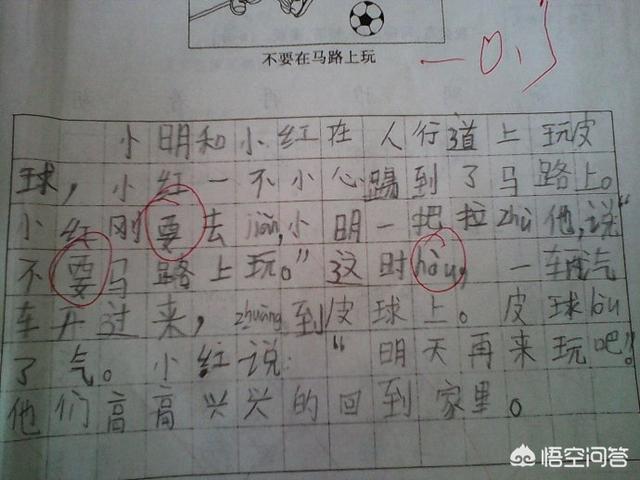 不要在马路上玩
-0.5
小明和小红在人行道上玩皮
球，小红一不小心踢到了马路上。
小红刚要去jiǎn，小明一把拉zhù他，说“
不要马路上玩。”这时hòu，一车气
车开过来，zhuàng到皮球上。皮球lòu
了气。小红说：“明天再来玩吧！”
他们高高兴兴的回到家里。
悟空问答